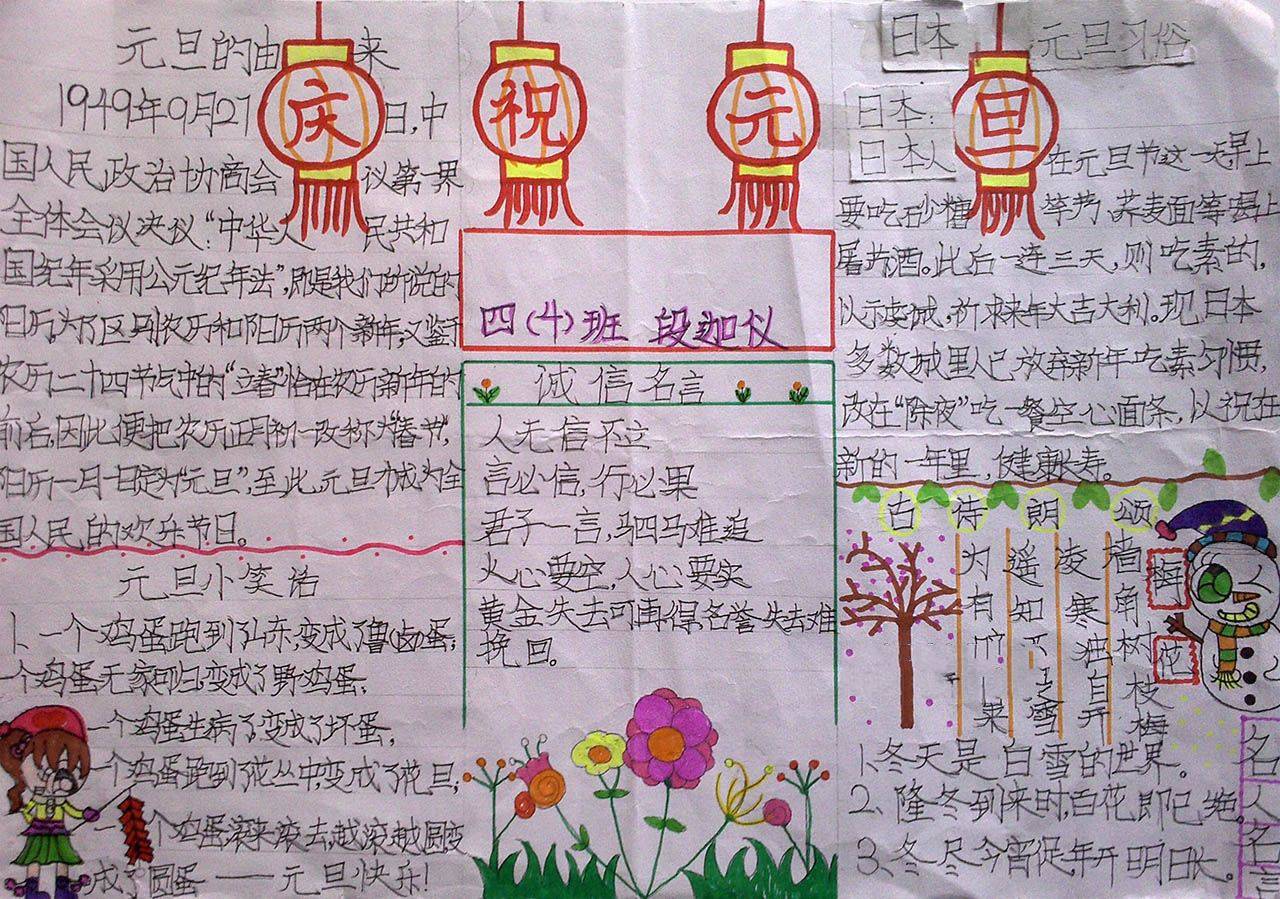 庆祝元旦
元旦的由来
1949年9月27日,中
国人民政治协商会议第一界
全体会议决议:“中华人民共和
国纪年采用公元纪年法”,即是我们所说的
阳历,为了区别农历和阳历两个新年,又鉴于
农历二十四节气中的“立春”恰在农历新年的
前后,因此便把农历正月初一改称为“春节”,
阳历一月一日定为“元旦”,至此,元旦才成为全
国人民的欢乐节日。
元旦小笑话
1、一个鸡蛋跑到山东,变成了鲁卤蛋;
一个鸡蛋无家可归,变成了野鸡蛋;
一个鸡蛋生病了变成了坏蛋;
一个鸡蛋跑到花丛中,变成了花旦;
一个鸡蛋滚来滚去,越滚越圆变
成了圆蛋——元旦快乐!
四(4)班 段迦仪
诚信名言
人无信不立
言必信,行必果
君子一言,驷马难追
火心要空,人心要实
黄金失去可再得,名誉失去难
挽回。
日本元旦习俗
日本:
日本人在元旦节这一天,早上
要吃砂糖竽艿、荞麦面等喝上
屠苏酒。此后一连三天,则吃素的,
以示虔诚,祈求来年大吉大利。现日本
多数城里人已放弃新年吃素习惯,
改在“除夜”吃一餐空心面条,以祝在
新的一年里,健康长寿。
古诗朗颂
梅花
墙角树枝梅
凌寒独自开
遥知不是雪
为有
果
1、冬天是白雪的世界。
2、隆冬到来时,百花即已绝。
3、冬尽今宵促,年开明日长。
名人名言